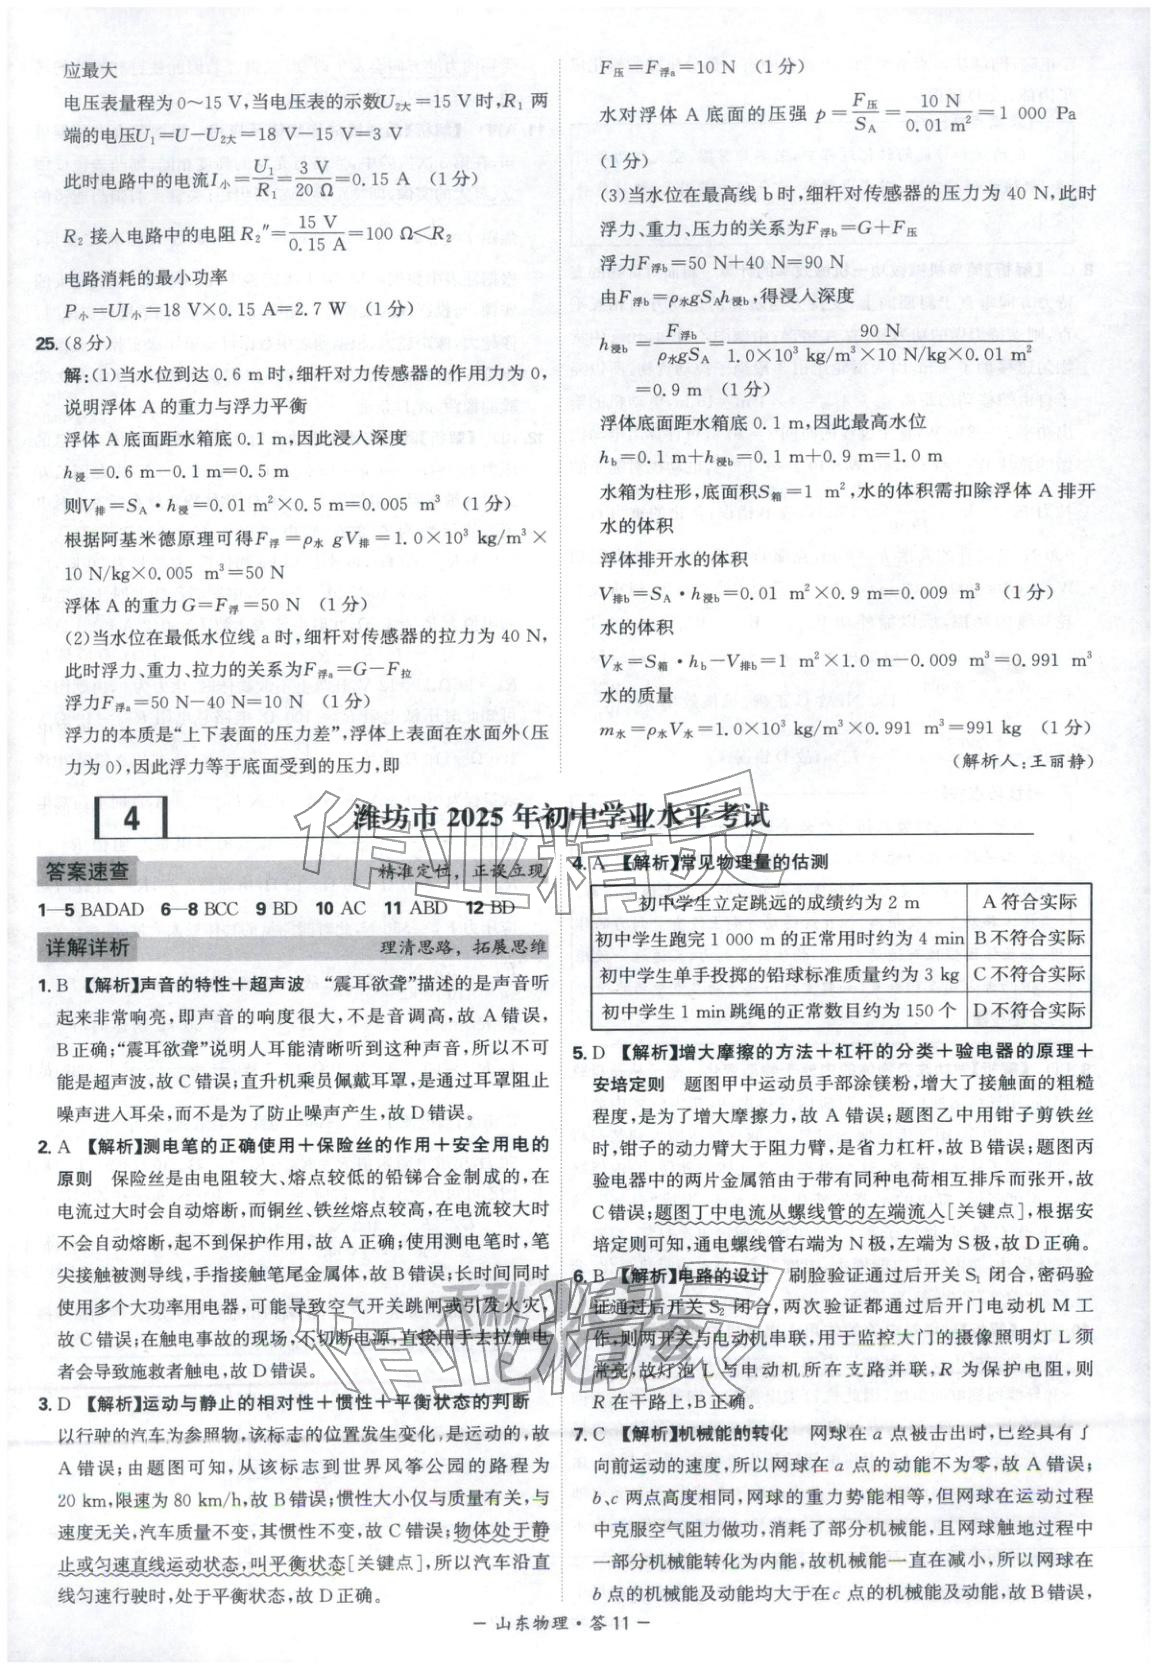 应最大
电压表量程为0～15 V,当电压表的示数U₂大=15 V时,R₁两
端的电压U₁=U-U₂大=18 V-15 V=3 V
此时电路中的电流I小=U₁/R₁=3 V/20 Ω=0.15 A (1分)
R₂接入电路中的电阻R₂″=15 V/0.15 A=100 Ω<R₂
电路消耗的最小功率
P小=UI小=18 V×0.15 A=2.7 W (1分)
25.(8分)
解:(1)当水位到达0.6 m时,细杆对力传感器的作用力为0,
说明浮体A的重力与浮力平衡
浮体A底面距水箱底0.1 m,因此浸入深度
h浸=0.6 m-0.1 m=0.5 m
则V排=S_A·h浸=0.01 m²×0.5 m=0.005 m³ (1分)
根据阿基米德原理可得F浮=ρ水gV排=1.0×10³ kg/m³×
10 N/kg×0.005 m³=50 N
浮体A的重力G=F浮=50 N (1分)
(2)当水位在最低水位线a时,细杆对传感器的拉力为40 N,
此时浮力、重力、拉力的关系为F浮a=G-F拉
浮力F浮a=50 N-40 N=10 N (1分)
浮力的本质是“上下表面的压力差”,浮体上表面在水面外(压
力为0),因此浮力等于底面受到的压力,即
F压=F浮a=10 N (1分)
水对浮体A底面的压强p=F压/S_A=10 N/0.01 m²=1 000 Pa
(1分)
(3)当水位在最高线b时,细杆对传感器的压力为40 N,此时
浮力、重力、压力的关系为F浮b=G+F压
浮力F浮b=50 N+40 N=90 N
由F浮b=ρ水gS_Ah浸b,得浸入深度
h浸b=F浮b/ρ水gS_A=90 N/1.0×10³ kg/m³×10 N/kg×0.01 m²
=0.9 m (1分)
浮体底面距水箱底0.1 m,因此最高水位
h_b=0.1 m+h浸b=0.1 m+0.9 m=1.0 m
水箱为柱形,底面积S箱=1 m²,水的体积需扣除浮体A排开
水的体积
浮体排开水的体积
V排b=S_A·h浸b=0.01 m²×0.9 m=0.009 m³ (1分)
水的体积
V水=S箱·h_b-V排b=1 m²×1.0 m-0.009 m³=0.991 m³
水的质量
m水=ρ水V水=1.0×10³ kg/m³×0.991 m³=991 kg (1分)
(解析人:王丽静)
4 潍坊市2025年初中学业水平考试
答案速查 精准定位,正误立现
1—5 BADAD 6—8 BCC 9 BD 10 AC 11 ABD 12 BD
详解详析 理清思路,拓展思维
1. B 【解析】声音的特性+超声波 “震耳欲聋”描述的是声音听
起来非常响亮,即声音的响度很大,不是音调高,故A错误,
B正确;“震耳欲聋”说明人耳能清晰听到这种声音,所以不可
能是超声波,故C错误;直升机乘员佩戴耳罩,是通过耳罩阻止
噪声进入耳朵,而不是为了防止噪声产生,故D错误。
2. A 【解析】测电笔的正确使用+保险丝的作用+安全用电的
原则 保险丝是由电阻较大、熔点较低的铅锑合金制成的,在
电流过大时会自动熔断,而铜丝、铁丝熔点较高,在电流较大时
不会自动熔断,起不到保护作用,故A正确;使用测电笔时,笔
尖接触被测导线,手指接触笔尾金属体,故B错误;长时间同时
使用多个大功率用电器,可能导致空气开关跳闸或引发火灾,
故C错误;在触电事故的现场,不切断电源,直接用手去拉触电
者会导致施救者触电,故D错误。
3. D 【解析】运动与静止的相对性+惯性+平衡状态的判断
以行驶的汽车为参照物,该标志的位置发生变化,是运动的,故
A错误;由题图可知,从该标志到世界风筝公园的路程为
20 km,限速为80 km/h,故B错误;惯性大小仅与质量有关,与
速度无关,汽车质量不变,其惯性不变,故C错误;物体处于静
止或匀速直线运动状态,叫平衡状态[关键点],所以汽车沿直
线匀速行驶时,处于平衡状态,故D正确。
4. A 【解析】常见物理量的估测
初中学生立定跳远的成绩约为2 m A符合实际
初中学生跑完1 000 m的正常用时约为4 min B不符合实际
初中学生单手投掷的铅球标准质量约为3 kg C不符合实际
初中学生1 min跳绳的正常数目约为150个 D不符合实际
5. D 【解析】增大摩擦的方法+杠杆的分类+验电器的原理+
安培定则 题图甲中运动员手部涂镁粉,增大了接触面的粗糙
程度,是为了增大摩擦力,故A错误;题图乙中用钳子剪铁丝
时,钳子的动力臂大于阻力臂,是省力杠杆,故B错误;题图丙
验电器中的两片金属箔由于带有同种电荷相互排斥而张开,故
C错误;题图丁中电流从螺线管的左端流入[关键点],根据安
培定则可知,通电螺线管右端为N极,左端为S极,故D正确。
6. B 【解析】电路的设计 刷脸验证通过后开关S₁闭合,密码验
证通过后开关S₂闭合,两次验证都通过后开门电动机M工
作,则两开关与电动机串联,用于监控大门的摄像照明灯L须
常亮,故灯泡L与电动机所在支路并联,R为保护电阻,则
R在干路上,B正确。
7. C 【解析】机械能的转化 网球在a点被击出时,已经具有了
向前运动的速度,所以网球在a点的动能不为零,故A错误;
b、c两点高度相同,网球的重力势能相等,但网球在运动过程
中克服空气阻力做功,消耗了部分机械能,且网球触地过程中
一部分机械能转化为内能,故机械能一直在减小,所以网球在
b点的机械能及动能均大于在c点的机械能及动能,故B错误,
— 山东物理·答11 —
作业精灵
作业精灵